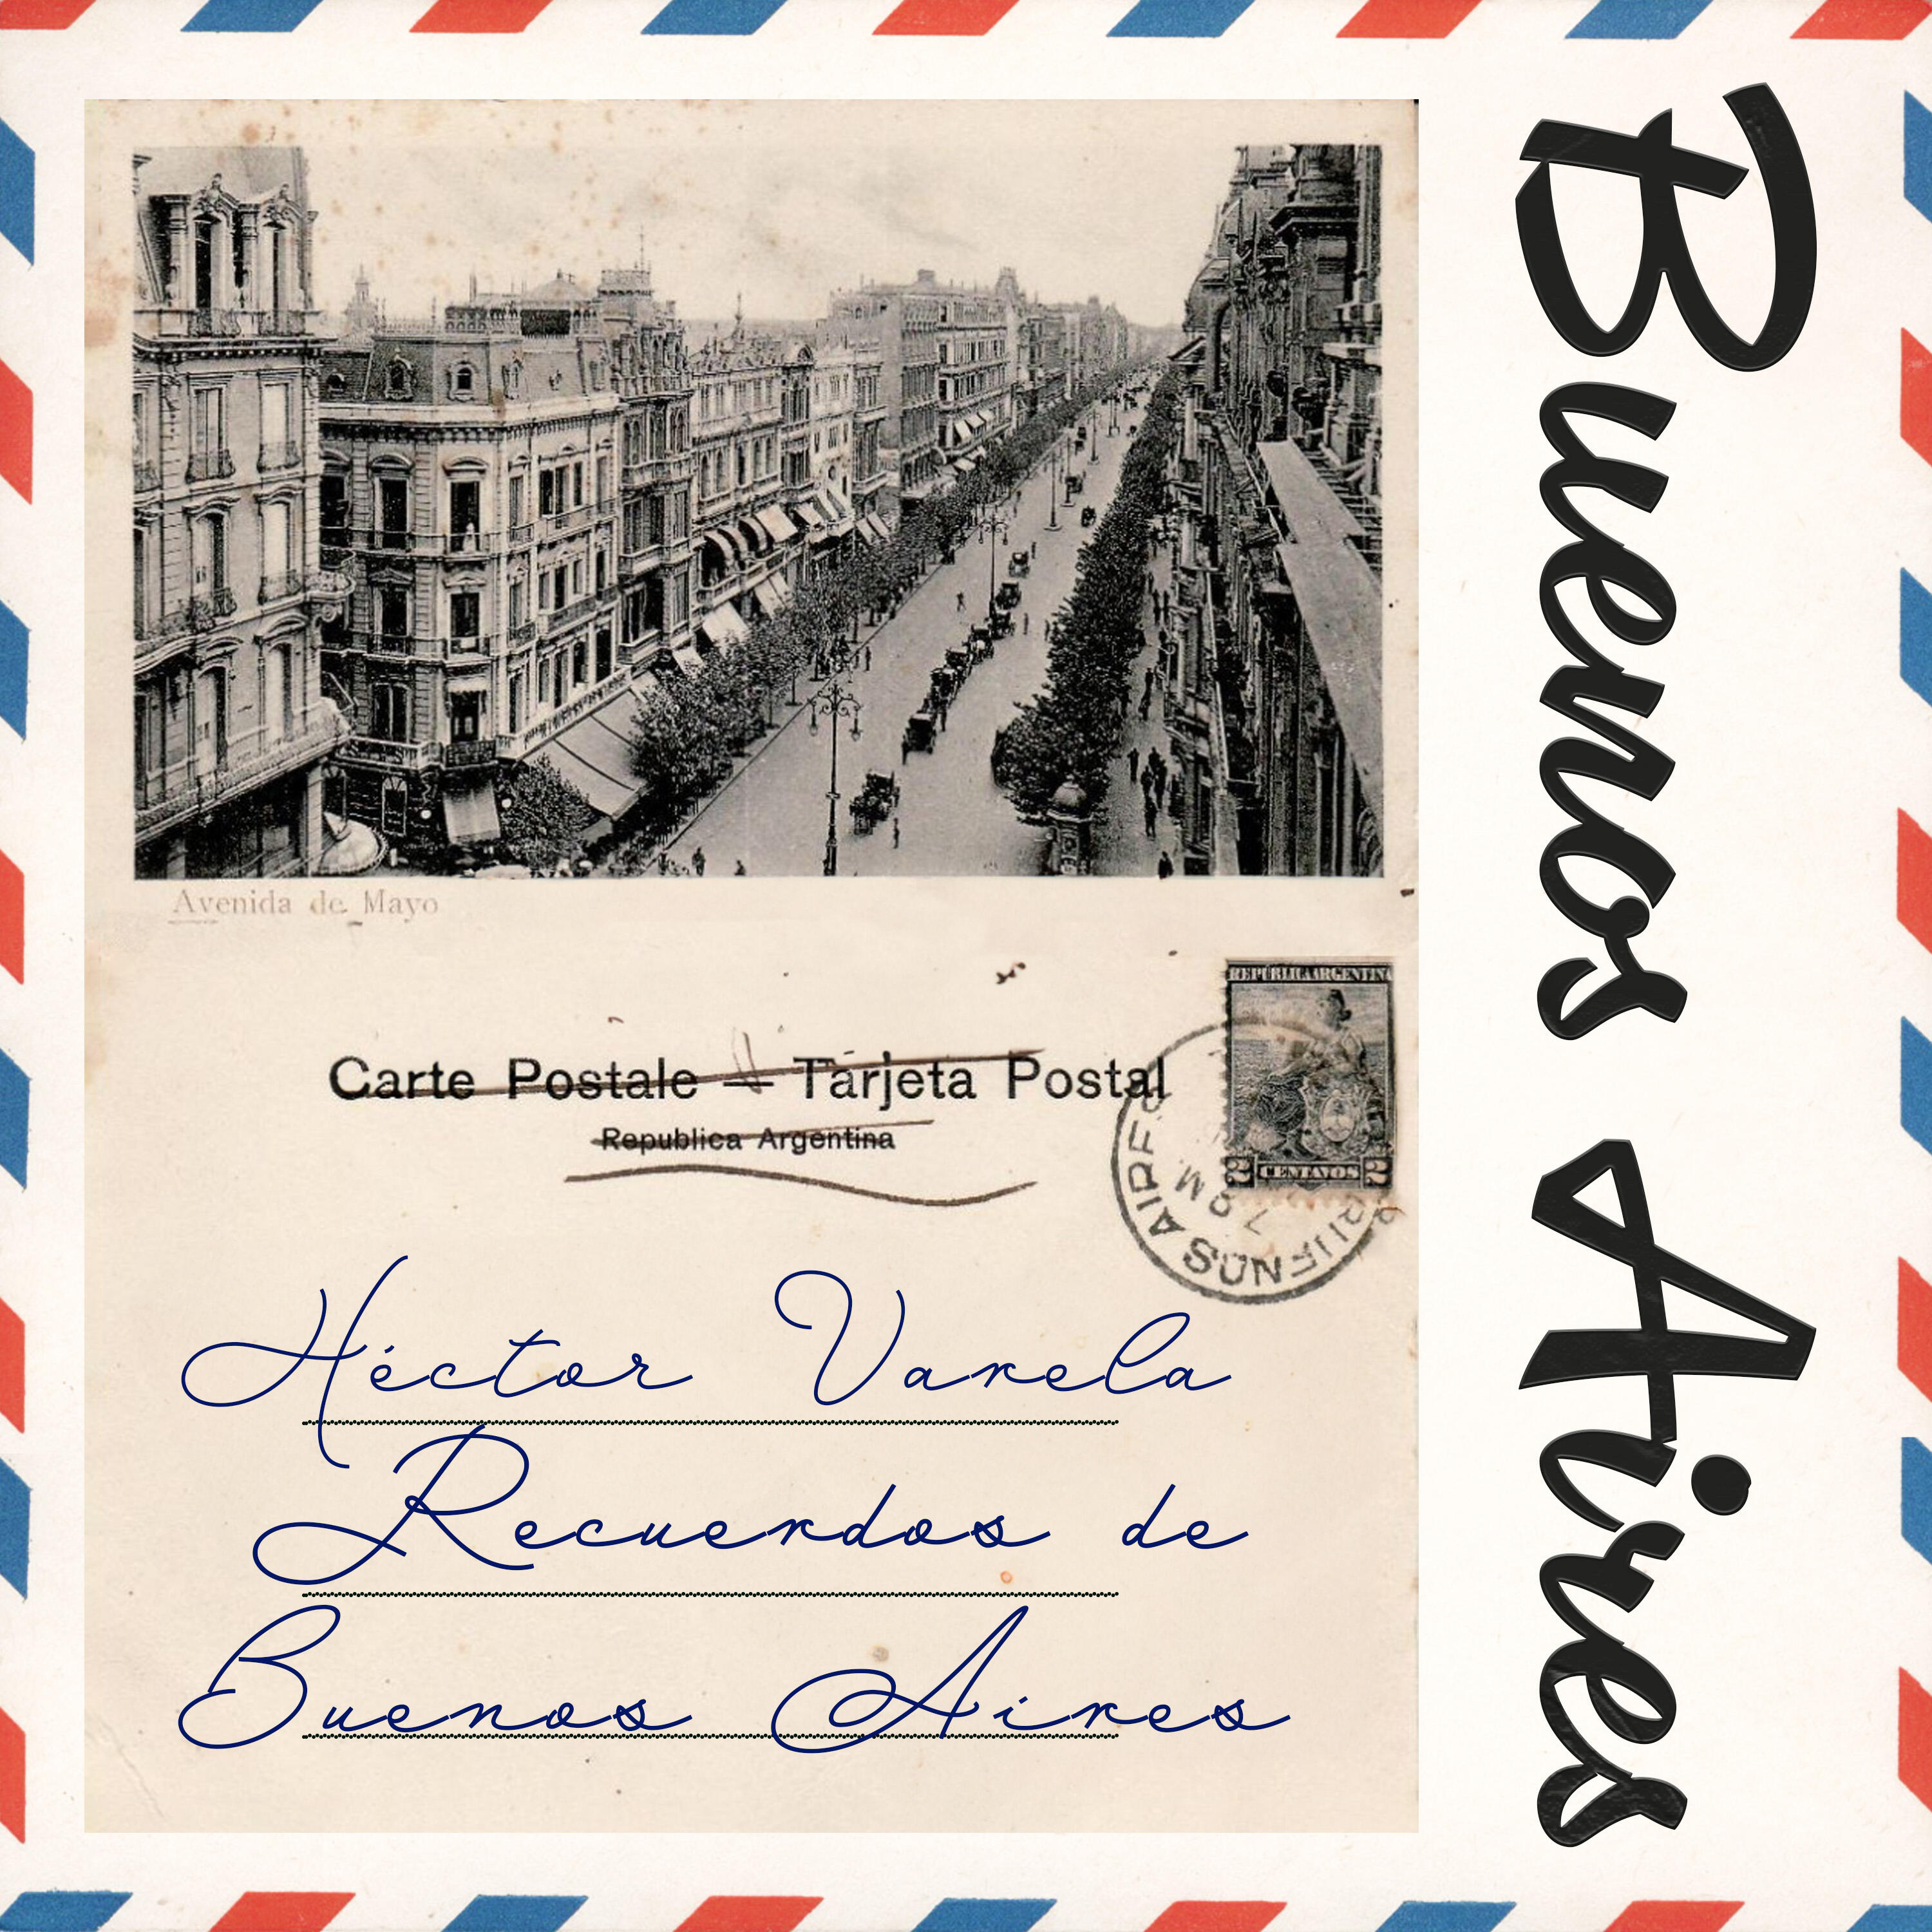 Avenida de Mayo
Carte Postale — Tarjeta Postal
Republica Argentina
REPÚBLICA ARGENTINA
2 CENTAVOS 2
BUENOS AIRES
Héctor Varela
Recuerdos de
Buenos Aires
Buenos Aires